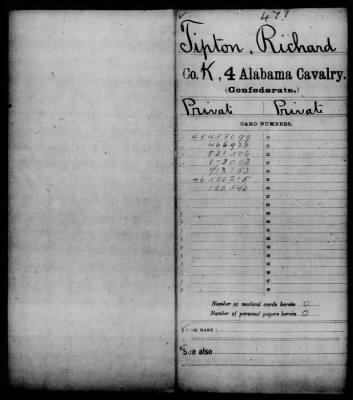 479
Tipton, Richard
Co. K, 4 Alabama Cavalry.
(Confederate.)
Private Private
CARD NUMBERS.
45457099
821506
873003
913153
46550215
Number of medical cards herein 0
Number of personal papers herein 0
BOOK MARK:
See also